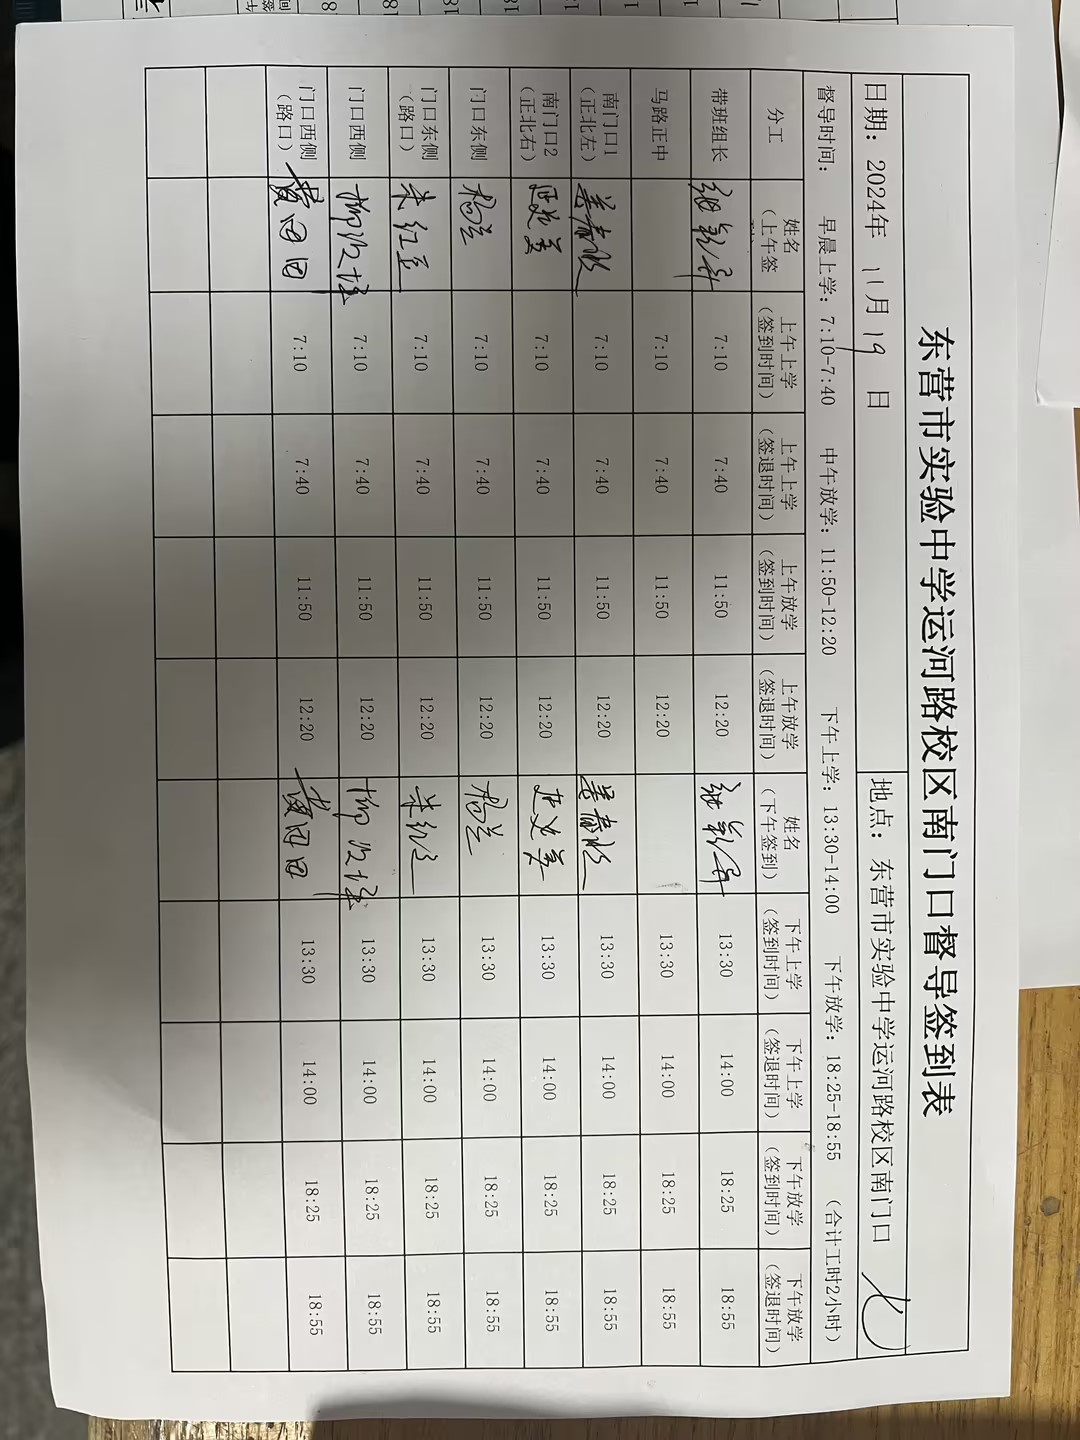 东营市实验中学运河路校区南门口督导签到表
日期： 2024年 11月 19 日 地点： 东营市实验中学运河路校区南门口
督导时间： 早晨上学：7:10-7:40 中午放学：11:50-12:20 下午上学：13:30-14:00 下午放学：18:25-18:55 （合计工时2小时）
分工 姓名（上午签 上午上学（签到时间） 上午上学（签退时间） 上午放学（签到时间） 上午放学（签退时间） 姓名（下午签到） 下午上学（签到时间） 下午上学（签退时间） 下午放学（签到时间） 下午放学（签退时间）
带班组长 7:10 7:40 11:50 12:20 13:30 14:00 18:25 18:55
马路正中 7:10 7:40 11:50 12:20 13:30 14:00 18:25 18:55
南门口1（正北左） 7:10 7:40 11:50 12:20 13:30 14:00 18:25 18:55
南门口2（正北右） 7:10 7:40 11:50 12:20 13:30 14:00 18:25 18:55
门口东侧 杨兰 7:10 7:40 11:50 12:20 杨兰 13:30 14:00 18:25 18:55
门口东侧（路口） 7:10 7:40 11:50 12:20 13:30 14:00 18:25 18:55
门口西侧 7:10 7:40 11:50 12:20 13:30 14:00 18:25 18:55
门口西侧（路口） 黄田田 7:10 7:40 11:50 12:20 黄田田 13:30 14:00 18:25 18:55